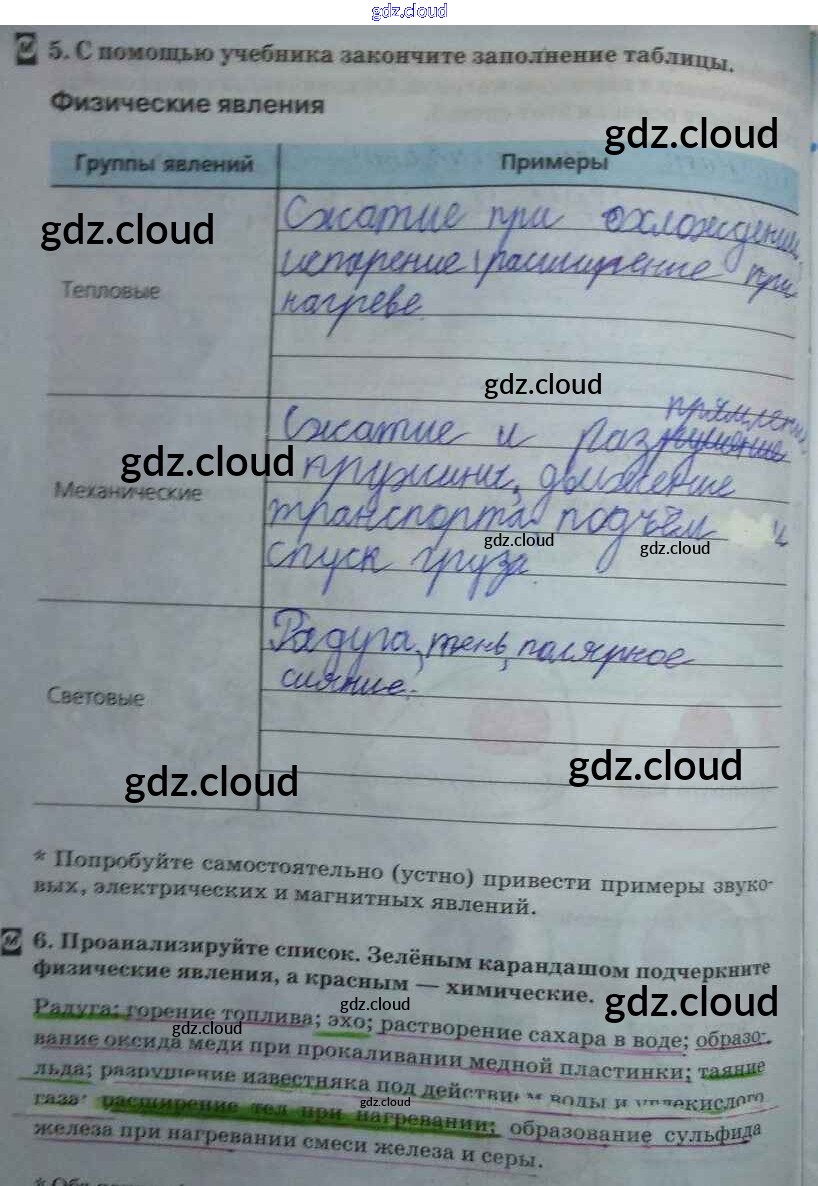 gdz.cloud
5. С помощью учебника закончите заполнение таблицы.
Физические явления
gdz.cloud
Группы явлений Примеры
gdz.cloud
Тепловые
Сжатие при охлождении,
испарение, расширение при
нагреве.
gdz.cloud
Механические
Сжатие и разпрямление
gdz.cloud
пружины, движение
транспорта подъём и
gdz.cloud
gdz.cloud
спуск груза.
Световые
Радуга, тень, полярное
сияние.
gdz.cloud
gdz.cloud
* Попробуйте самостоятельно (устно) привести примеры звуко-
вых, электрических и магнитных явлений.
6. Проанализируйте список. Зелёным карандашом подчеркните
физические явления, а красным — химические.
gdz.cloud
gdz.cloud
Радуга; горение топлива; эхо; растворение сахара в воде; образо-
gdz.cloud
вание оксида меди при прокаливании медной пластинки; таяние
льда; разрушение известняка под действием воды и углекислого
gdz.cloud
газа; расширение тел при нагревании; образование сульфида
железа при нагревании смеси железа и серы.